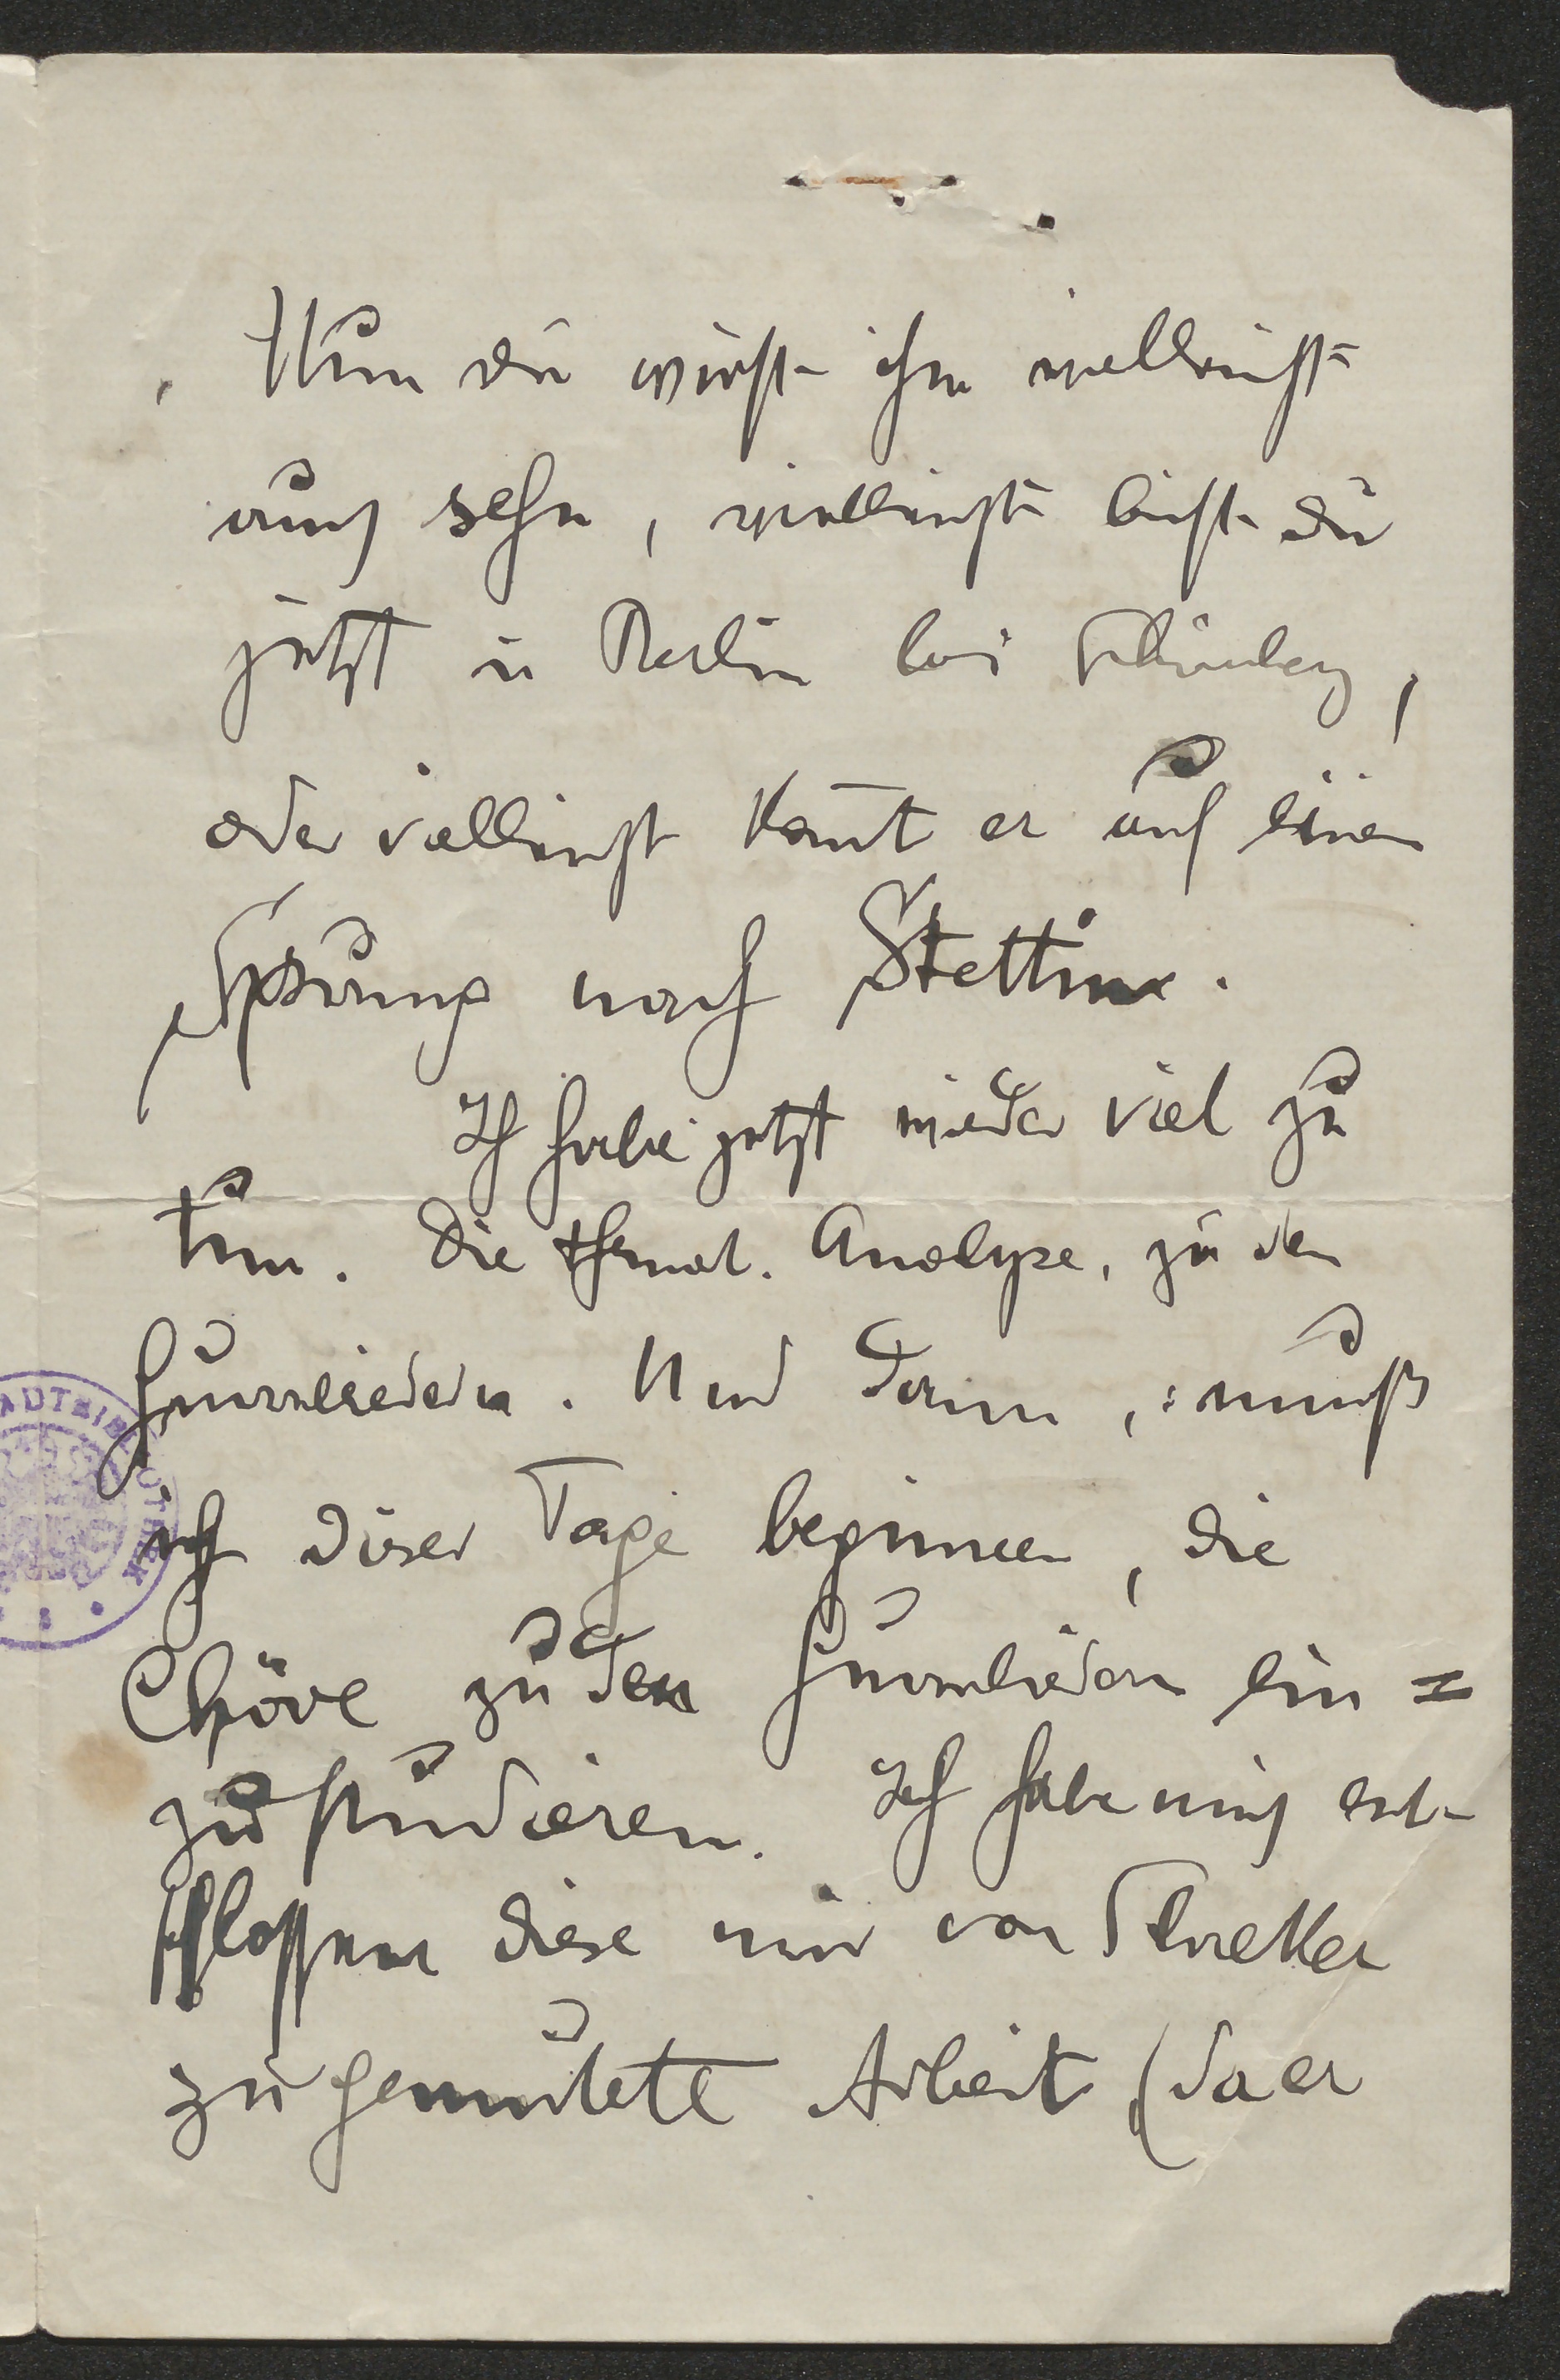 Nun du wirst ihn vielleicht
auch sehn, vielleicht bist du
jetzt in Berlin bei Schönberg,
oder vielleicht kom̅t er auf einen
Sprung nach Stettin.
Ich habe jetzt wieder viel zu
tun. Die themat. Analyse, zu den
Gurreliedern. Und dann, muß
ich dieser Tage beginnen, die
Chöre zu den Gurreliedern ein=
zustudieren. Ich habe mich ent-
schlossen diese mir von Schreker
zugemutete Arbeit (da er
STADTBIBLIOTHEK